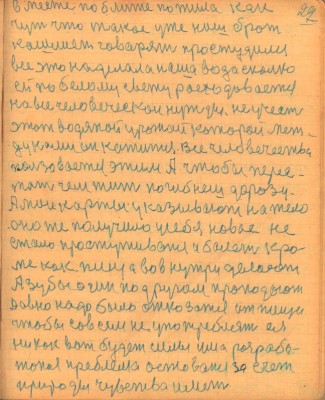 29
в месте поближе пожила как
чут что такое уже наш брот
кашляет говарят простудился
все это наделала наша вода сколко
ей по белому свету расходовается
на все человеческаи нужды. не учест
этот водяной урожай каторай меж
думами он катится. Все человечество
ползовается этим А чтобы пере
тем чем пит
А мои карты указывают на тело
оно не получило у себя новае не
стало простуживатся и болеет кро
ме как пищу а вовнутри делоют
А зубы один под ругом пропадают
Давно надо было отказатся от пищи
чтобы совсем не употреблят ея
никак вот будет силы има розрабо
тоная проблема основана за счет
природы чувства имет